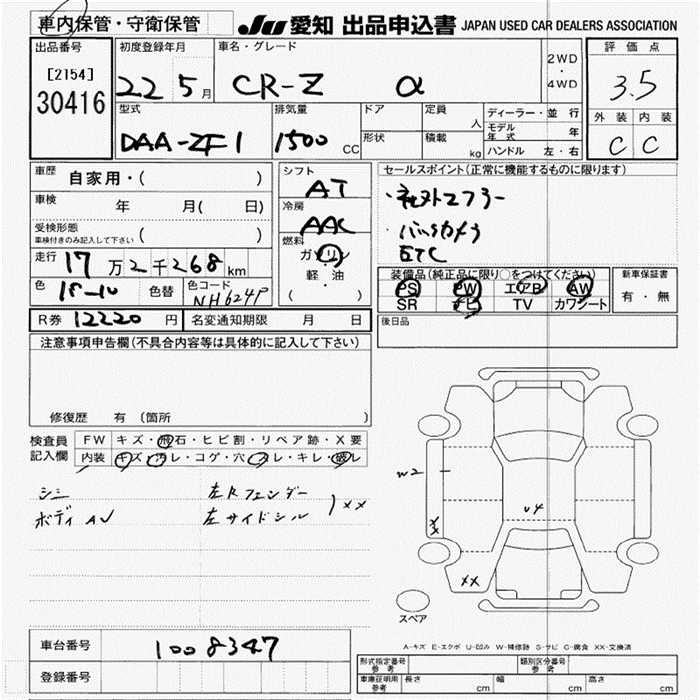 車内保管・守衛保管 JU 愛知 出品申込書 JAPAN USED CAR DEALERS ASSOCIATION
出品番号 初度登録年月 車名・グレード 評価点
[2154] 22 5月 CR-Z α 2WD・4WD 3.5
30416
型式 排気量 ドア 定員 人 ディーラー・並行 外装 内装
DAA-ZF1 1500CC 形状 積載 kg モデル年式 年 C C
ハンドル 左・右
車歴 自家用・( ) シフト AT セールスポイント(正常に機能するものに限ります)
車検 年 月( 日) 冷房 AAC
受検形態 車検付きのみ記入して下さい ( ) ・バックカメラ
走行 17万2千268km 燃料 ガソリン 軽・油 ( ・ ) ETC
装備品(純正品に限り○をつけてください) 新車保証書
色 色替 色コード NH624P PS PW エアB AW 有・無
SR ナビ TV カワシート
R券 12220円 名変通知期限 月 日 後日品
注意事項申告欄(不具合内容等は具体的に記入して下さい)
修復歴 有 (箇所 )
検査員記入欄 FW キズ・飛石・ヒビ割・リペア跡・X要
内装 キズ・汚レ・コゲ・穴・スレ・キレ・破レ
シミ 左Rフェンダー
ボディ AU 左サイドシル )××
W2
××
U4
××
スペア
A-キズ E-エクボ U-凹み W-補修跡 S-サビ C-腐食 XX-交換済
車台番号 1008347
登録番号
形式指定番号 参考 類別区分番号 参考
車庫証明用 参考 長さ cm 幅 cm 高さ cm